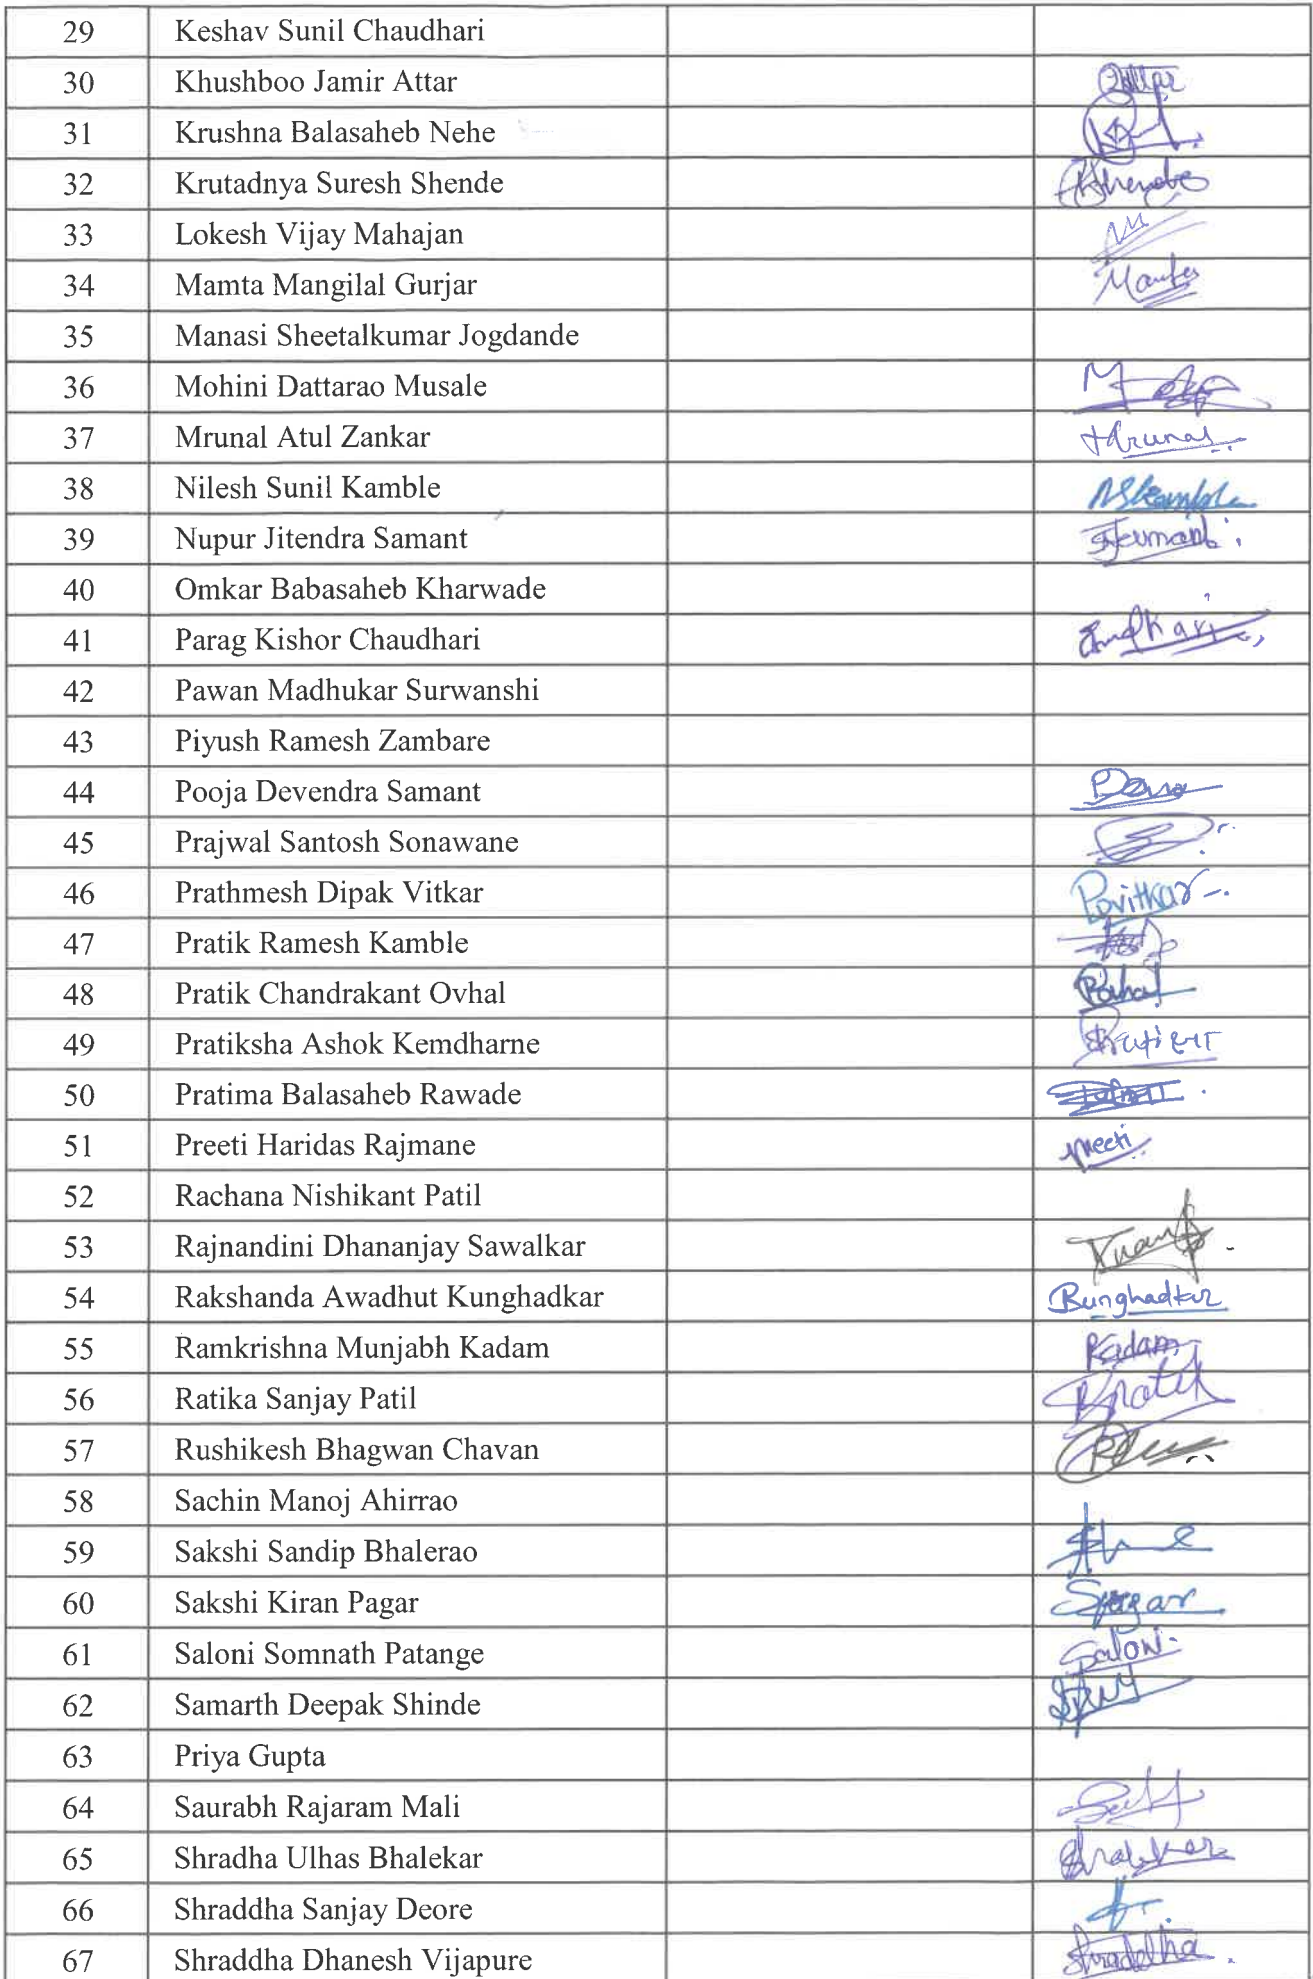 29 Keshav Sunil Chaudhari
30 Khushboo Jamir Attar Attar
31 Krushna Balasaheb Nehe
32 Krutadnya Suresh Shende Shende
33 Lokesh Vijay Mahajan
34 Mamta Mangilal Gurjar Mamta
35 Manasi Sheetalkumar Jogdande
36 Mohini Dattarao Musale
37 Mrunal Atul Zankar Mrunal
38 Nilesh Sunil Kamble NSKamble
39 Nupur Jitendra Samant
40 Omkar Babasaheb Kharwade
41 Parag Kishor Chaudhari
42 Pawan Madhukar Surwanshi
43 Piyush Ramesh Zambare
44 Pooja Devendra Samant
45 Prajwal Santosh Sonawane
46 Prathmesh Dipak Vitkar Pvitkar
47 Pratik Ramesh Kamble
48 Pratik Chandrakant Ovhal
49 Pratiksha Ashok Kemdharne
50 Pratima Balasaheb Rawade
51 Preeti Haridas Rajmane Preeti
52 Rachana Nishikant Patil
53 Rajnandini Dhananjay Sawalkar
54 Rakshanda Awadhut Kunghadkar Runghadkar
55 Ramkrishna Munjabh Kadam Kadam
56 Ratika Sanjay Patil
57 Rushikesh Bhagwan Chavan
58 Sachin Manoj Ahirrao
59 Sakshi Sandip Bhalerao
60 Sakshi Kiran Pagar Spagar
61 Saloni Somnath Patange Saloni
62 Samarth Deepak Shinde
63 Priya Gupta
64 Saurabh Rajaram Mali
65 Shradha Ulhas Bhalekar
66 Shraddha Sanjay Deore
67 Shraddha Dhanesh Vijapure Shraddha